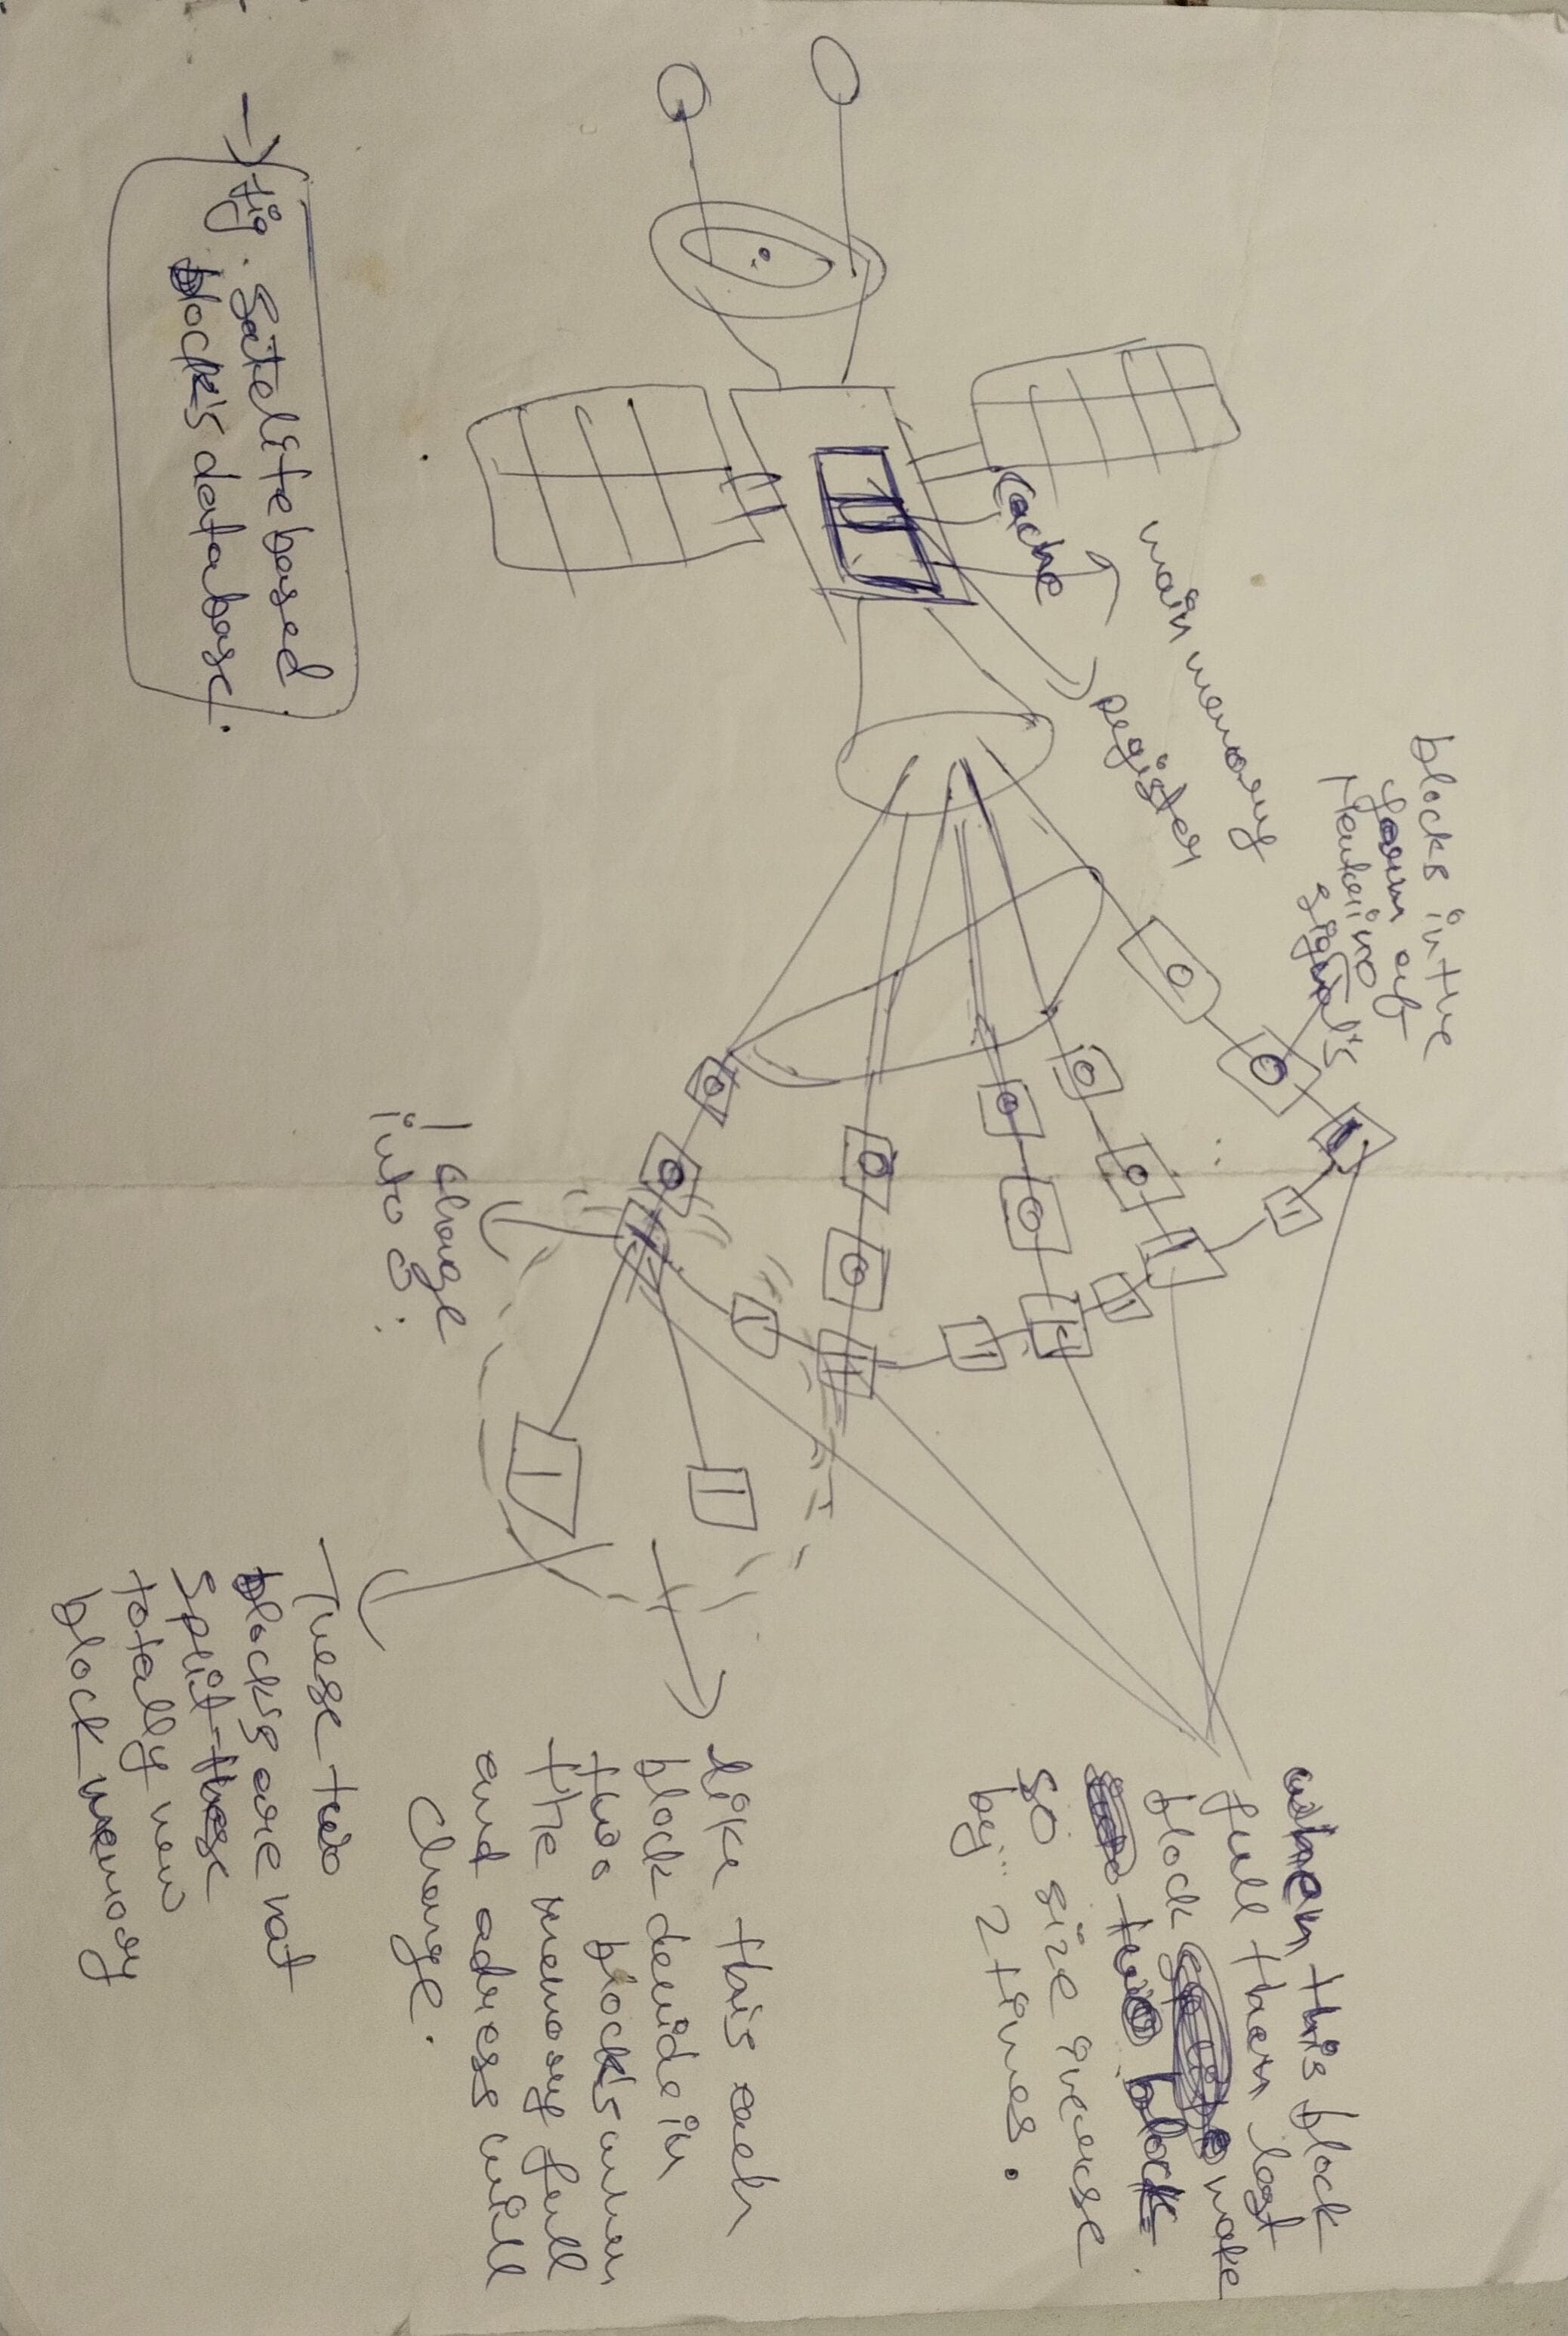 blocks in the
form of
Neutrino
signal's
main memory
Register
Cache
when this block
full then last
block make
two block
so size iverse
by 2 times.
like this each
block devide in
two block's when
the memory full
and adress will
change.
1 change
into 0.
These two
block's are not
split these
totally new
block memory
fig. Satelite based
block's database.
0
0
0
0
0
0
0
0
0
0
1
1
1
1
1
1
1
1
1
1
1